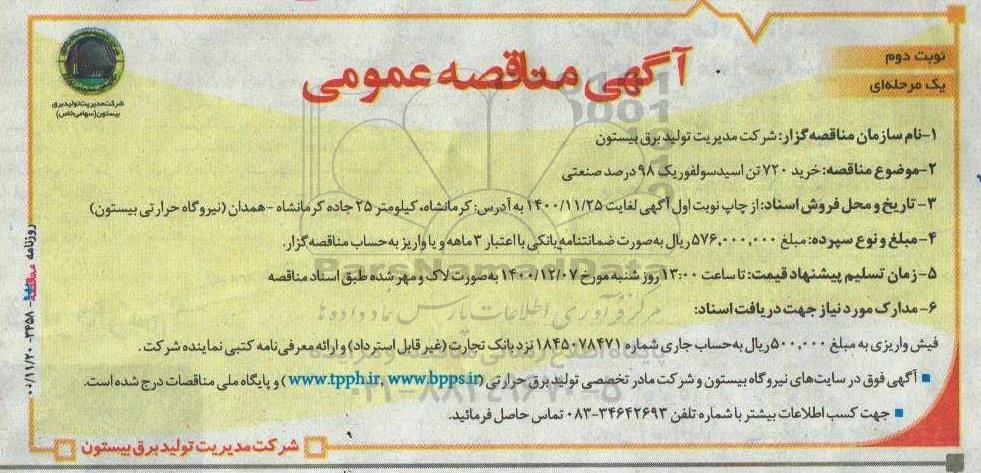 نوبت دوم
یک مرحله‌ای
آگهی مناقصه عمومی
شرکت مدیریت تولید برق
بیستون (سهامی خاص)
۱-نام سازمان مناقصه‌گزار: شرکت مدیریت تولید برق بیستون
۲-موضوع مناقصه: خرید ۷۲۰ تن اسیدسولفوریک ۹۸ درصد صنعتی
۳- تاریخ و محل فروش اسناد: از چاپ نوبت اول آگهی لغایت ۱۴۰۰/۱۱/۲۵ به آدرس: کرمانشاه، کیلومتر ۲۵ جاده کرمانشاه -همدان (نیروگاه حرارتی بیستون)
۴-مبلغ و نوع سپرده: مبلغ ۵۷۶,۰۰۰,۰۰۰ ریال به‌صورت ضمانتنامه‌بانکی با اعتبار ۳ ماهه و یا واریز به‌حساب مناقصه‌گزار.
۵-زمان تسلیم پیشنهاد قیمت: تا ساعت ۱۳:۰۰ روز شنبه مورخ ۱۴۰۰/۱۲/۰۷ به‌صورت لاک و مهر شده طبق اسناد مناقصه
۶- مدارک مورد نیاز جهت دریافت اسناد:
فیش واریزی به مبلغ ۵۰۰,۰۰۰ ریال به‌حساب جاری شماره ۱۸۴۵۰۷۸۴۷۱ نزد بانک تجارت (غیر قابل استرداد) و ارائه معرفی‌نامه کتبی نماینده شرکت.
■ آگهی فوق در سایت‌های نیروگاه بیستون و شرکت مادر تخصصی تولید برق حرارتی (www.tpph.ir, www.bpps.ir) و پایگاه ملی مناقصات درج شده است.
■ جهت کسب اطلاعات بیشتر با شماره تلفن ۳۴۶۴۲۶۹۳-۰۸۳ تماس حاصل فرمائید.
شرکت مدیریت تولید برق بیستون
روزنامه مناقصه - ۳۴۵۸ - ۰۰/۱۱/۲۰
ParsNamadData
مرکز فرآوری اطلاعات پارس نماد داده ها
۰۲۱-۸۸۳۴۹۶۷۰-۵